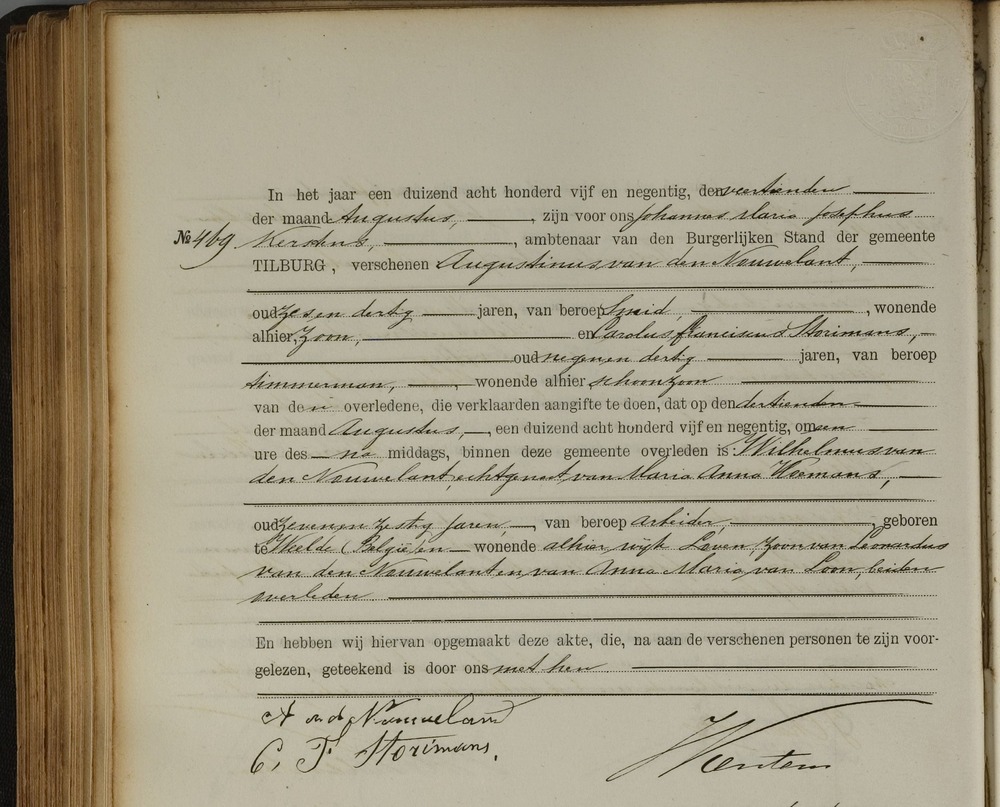 In het jaar een duizend acht honderd vijf en negentig, den veertienden
der maand Augustus, , zijn voor ons Johannes Maria Josephus
№ 469. Kerstens, , ambtenaar van den Burgerlijken Stand der gemeente
TILBURG, verschenen Augustinus van den Nouwelant,
oud zes en dertig jaren, van beroep Smid, , wonende
alhier, zoon, en Carolus Franciscus Storimans,
oud negen en dertig jaren, van beroep
timmerman, , wonende alhier schoonzoon
van den overledene, die verklaarden aangifte te doen, dat op den dertienden
der maand Augustus, , een duizend acht honderd vijf en negentig, om een
ure des na middags, binnen deze gemeente overleden is: Wilhelmus van
den Nouwelant, echtgenoot van Maria Anna
oud zeven en zestig jaren, , van beroep arbeider, , geboren
te Weelde (België) en wonende alhier wijk Loven, zoon van Leonardus
van den Nouwelant en van Anna Maria van Loon, beiden
overleden
En hebben wij hiervan opgemaakt deze akte, die, na aan de verschenen personen te zijn voor-
gelezen, geteekend is door ons met hen
A v d Nouweland
C. F. Storimans.
Kerstens